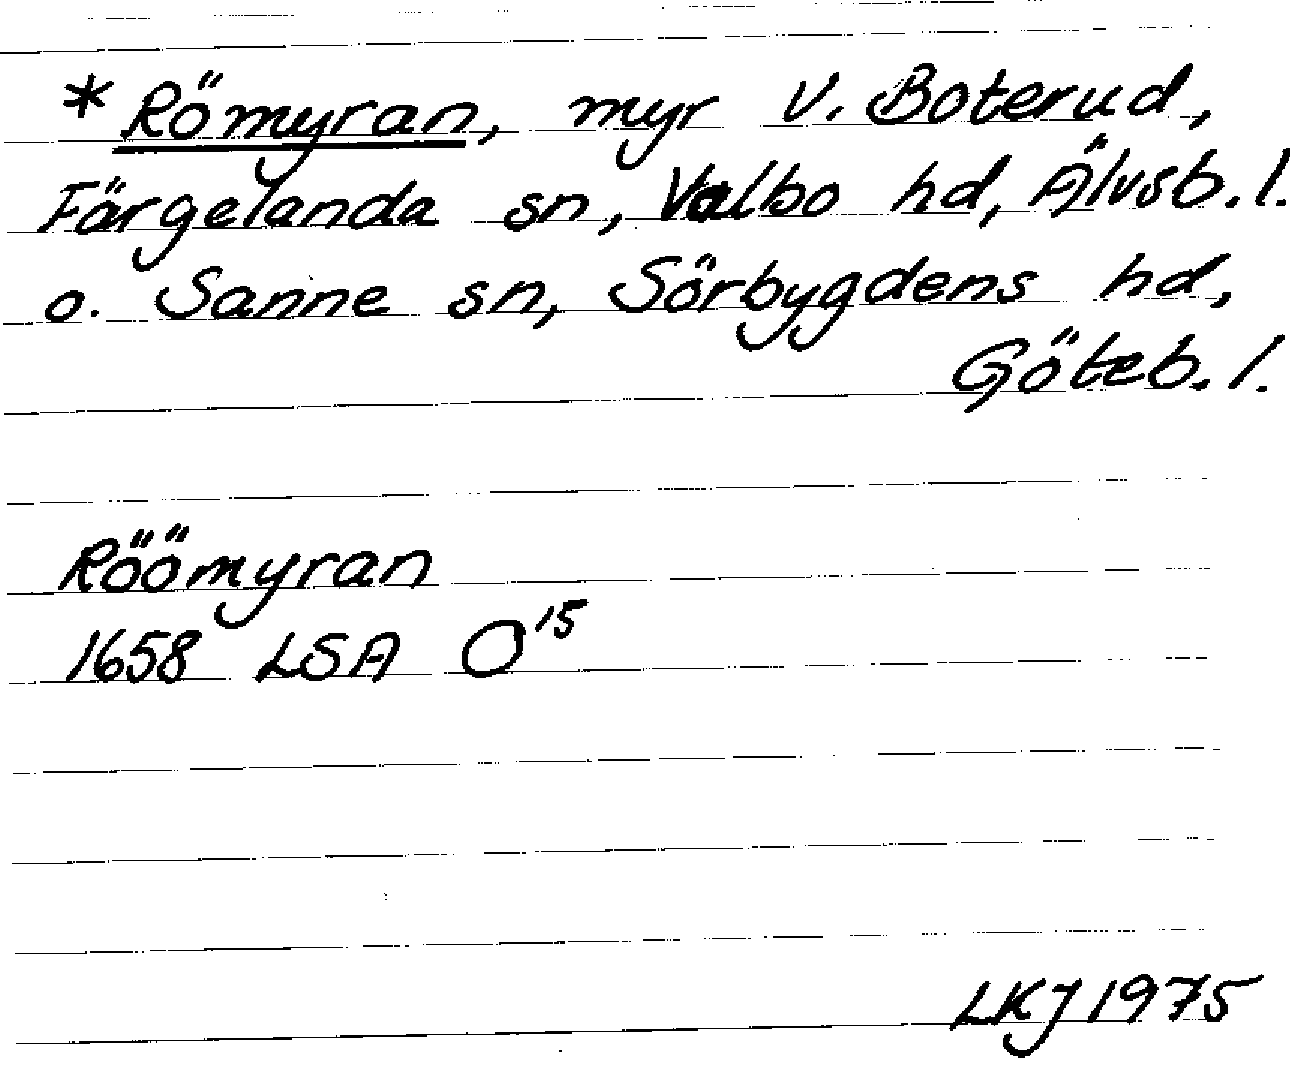 *Römyran, myr V. Boterud,
Färgelanda sn, Valbo hd, Älvsb. l.
o. Sanne sn, Sörbygdens hd,
Göteb. l.
Röömyran
1658 LSA O¹⁵
LKJ 1975